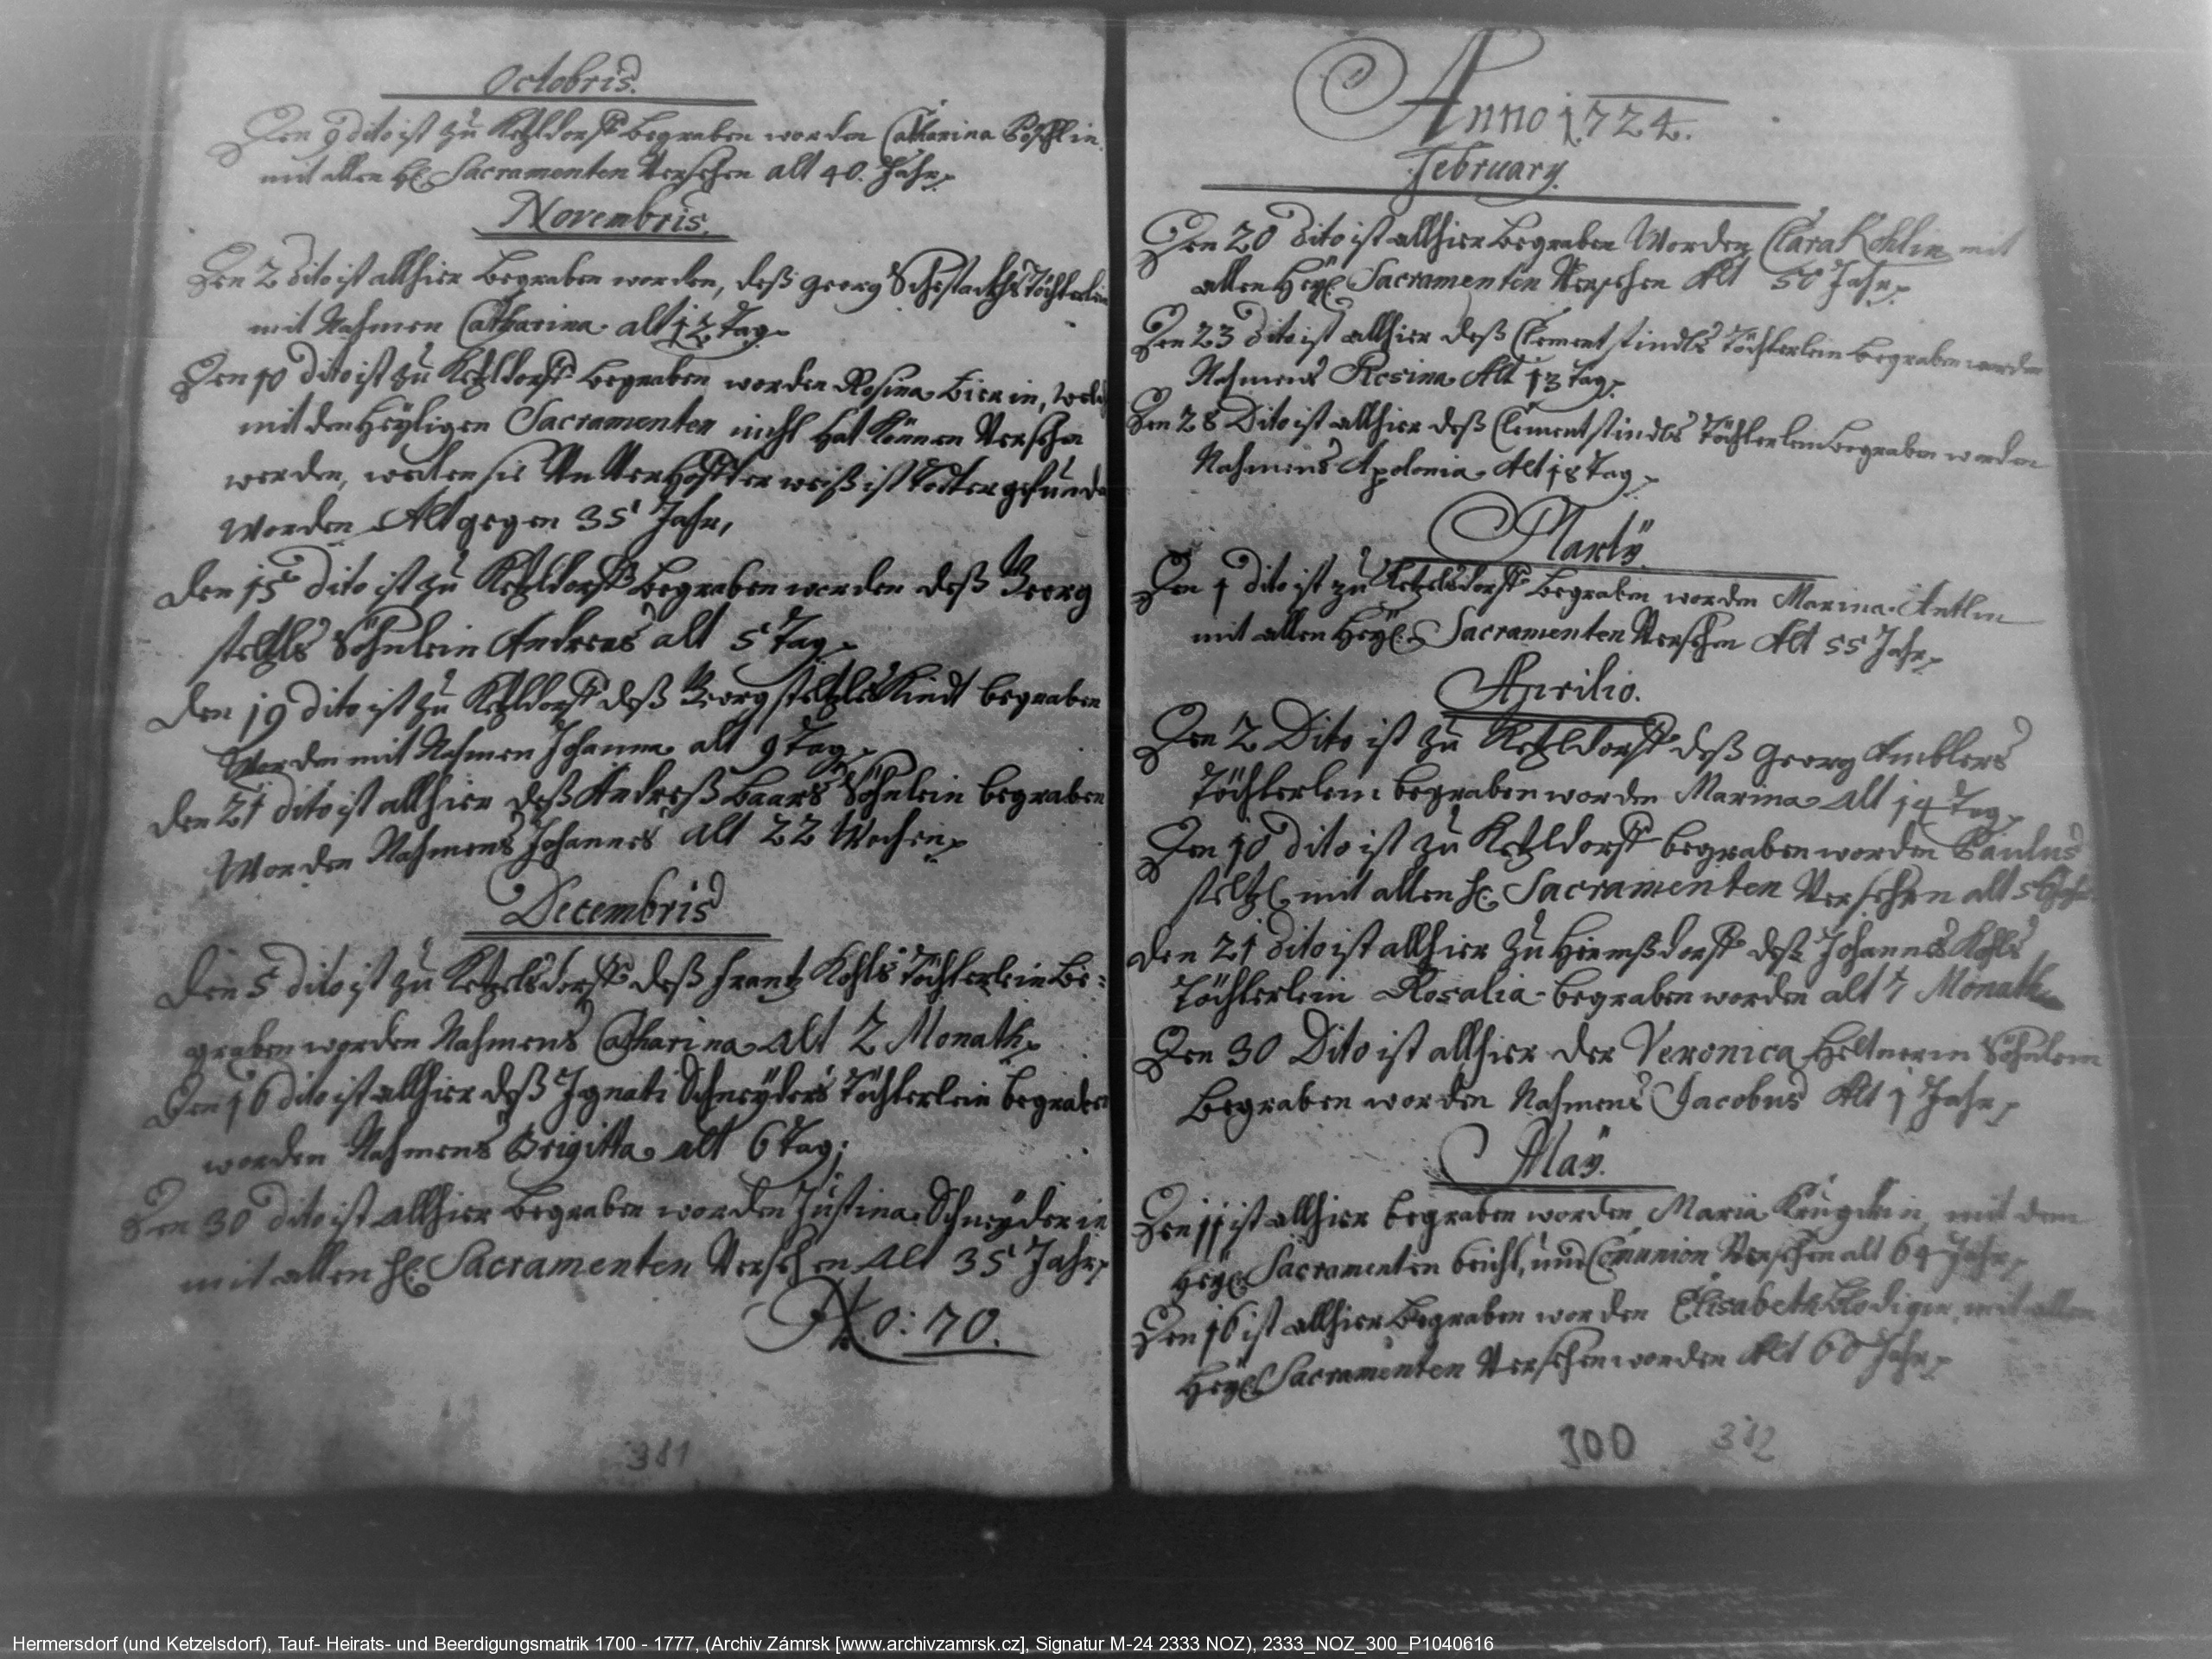 Octobris.
Den 9 dito ist zu Ketzldorff Begraben worden Catharina
mit allen Hl. Sacramenten Versehen alt 40. Jahr,
Novembris.
Den 2 dito ist allhier Begraben worden, deß Georg Töchterlein
mit Nahmen Catharina alt 12 Tag
Den 10 dito ist zu Ketzldorff Begraben worden Rosina Bierin, welche
mit den Heyligen Sacramenten nicht hat können Versehen
werden, weilen sie ist Todter gefunden
Worden Alt gegen 35 Jahr,
Den 15 dito ist zu Ketzldorff Begraben worden deß Georg
steltzls Söhnlein Andreas alt 5 Tag
Den 19 dito ist zu Ketzldorff deß Georg steltzles Kindt begraben
Worden mit Nahmen Johanna alt 9 Tag
Den 21 dito ist allhier deß Andreß Baars Söhnlein begraben
Worden Nahmens Johannes alt 22 Wochen
Decembris
Den 5 dito ist zu Ketzelsdorff deß Frantz Kohls Töchterlein Be:
graben worden Nahmens Catharina alt 2 Monath
Den 16 dito ist allhier deß Ignati Schneyders Töchterlein begraben
worden Nahmens Brigitta alt 6 Tag;
Den 30 dito ist allhier Begraben worden Justina Schneyderin
mit allen Hl. Sacramenten Versehen Alt 35 Jahr
No: 70.
381
Anno 1724.
February.
Den 20 dito ist allhier Begraben Worden Clara Kohlin mit
allen Heyl. Sacramenten Versehen Alt 50 Jahr
Den 23 dito ist allhier deß Clement stindls Töchterlein Begraben worden
Nahmens Rosina Alt 13 Tag
Den 28 Dito ist allhier deß Clement stindls Töchterlein Begraben worden
Nahmens Apolonia Alt 18 Tag
Martÿ.
Den 1 dito ist zu Ketzelsdorff Begraben worden Marina Antlin
mit allen Heyl. Sacramenten Versehen Alt 55 Jahr
Aprilio.
Den 2 Dito ist zu Ketzldorff deß Georg Amblers
Töchterlein begraben worden Marina alt 14 Tag
Den 10 dito ist zu Ketzldorff begraben worden Paulus
steltzl mit allen Hl. Sacramenten Versehen alt
Den 21 dito ist allhier zu Hermßdorff deß Johannes Kohls
Töchterlein Rosalia begraben worden alt 7 Monath
Den 30 Dito ist allhier der Veronica Heltnerin Söhnlein
Begraben worden Nahmens Jacobus Alt 1 Jahr
Maÿ.
Den 11 ist allhier begraben worden Maria mit dem
Heyl. Sacramenten beicht, und Comunion Versehen alt 64 Jahr
Den 16 ist allhier Begraben worden Elisabeth mit allen
Heyl. Sacramenten Versehen worden Alt 60 Jahr
300 382
Hermersdorf (und Ketzelsdorf), Tauf- Heirats- und Beerdigungsmatrik 1700 - 1777, (Archiv Zámrsk [www.archivzamrsk.cz], Signatur M-24 2333 NOZ), 2333_NOZ_300_P1040616